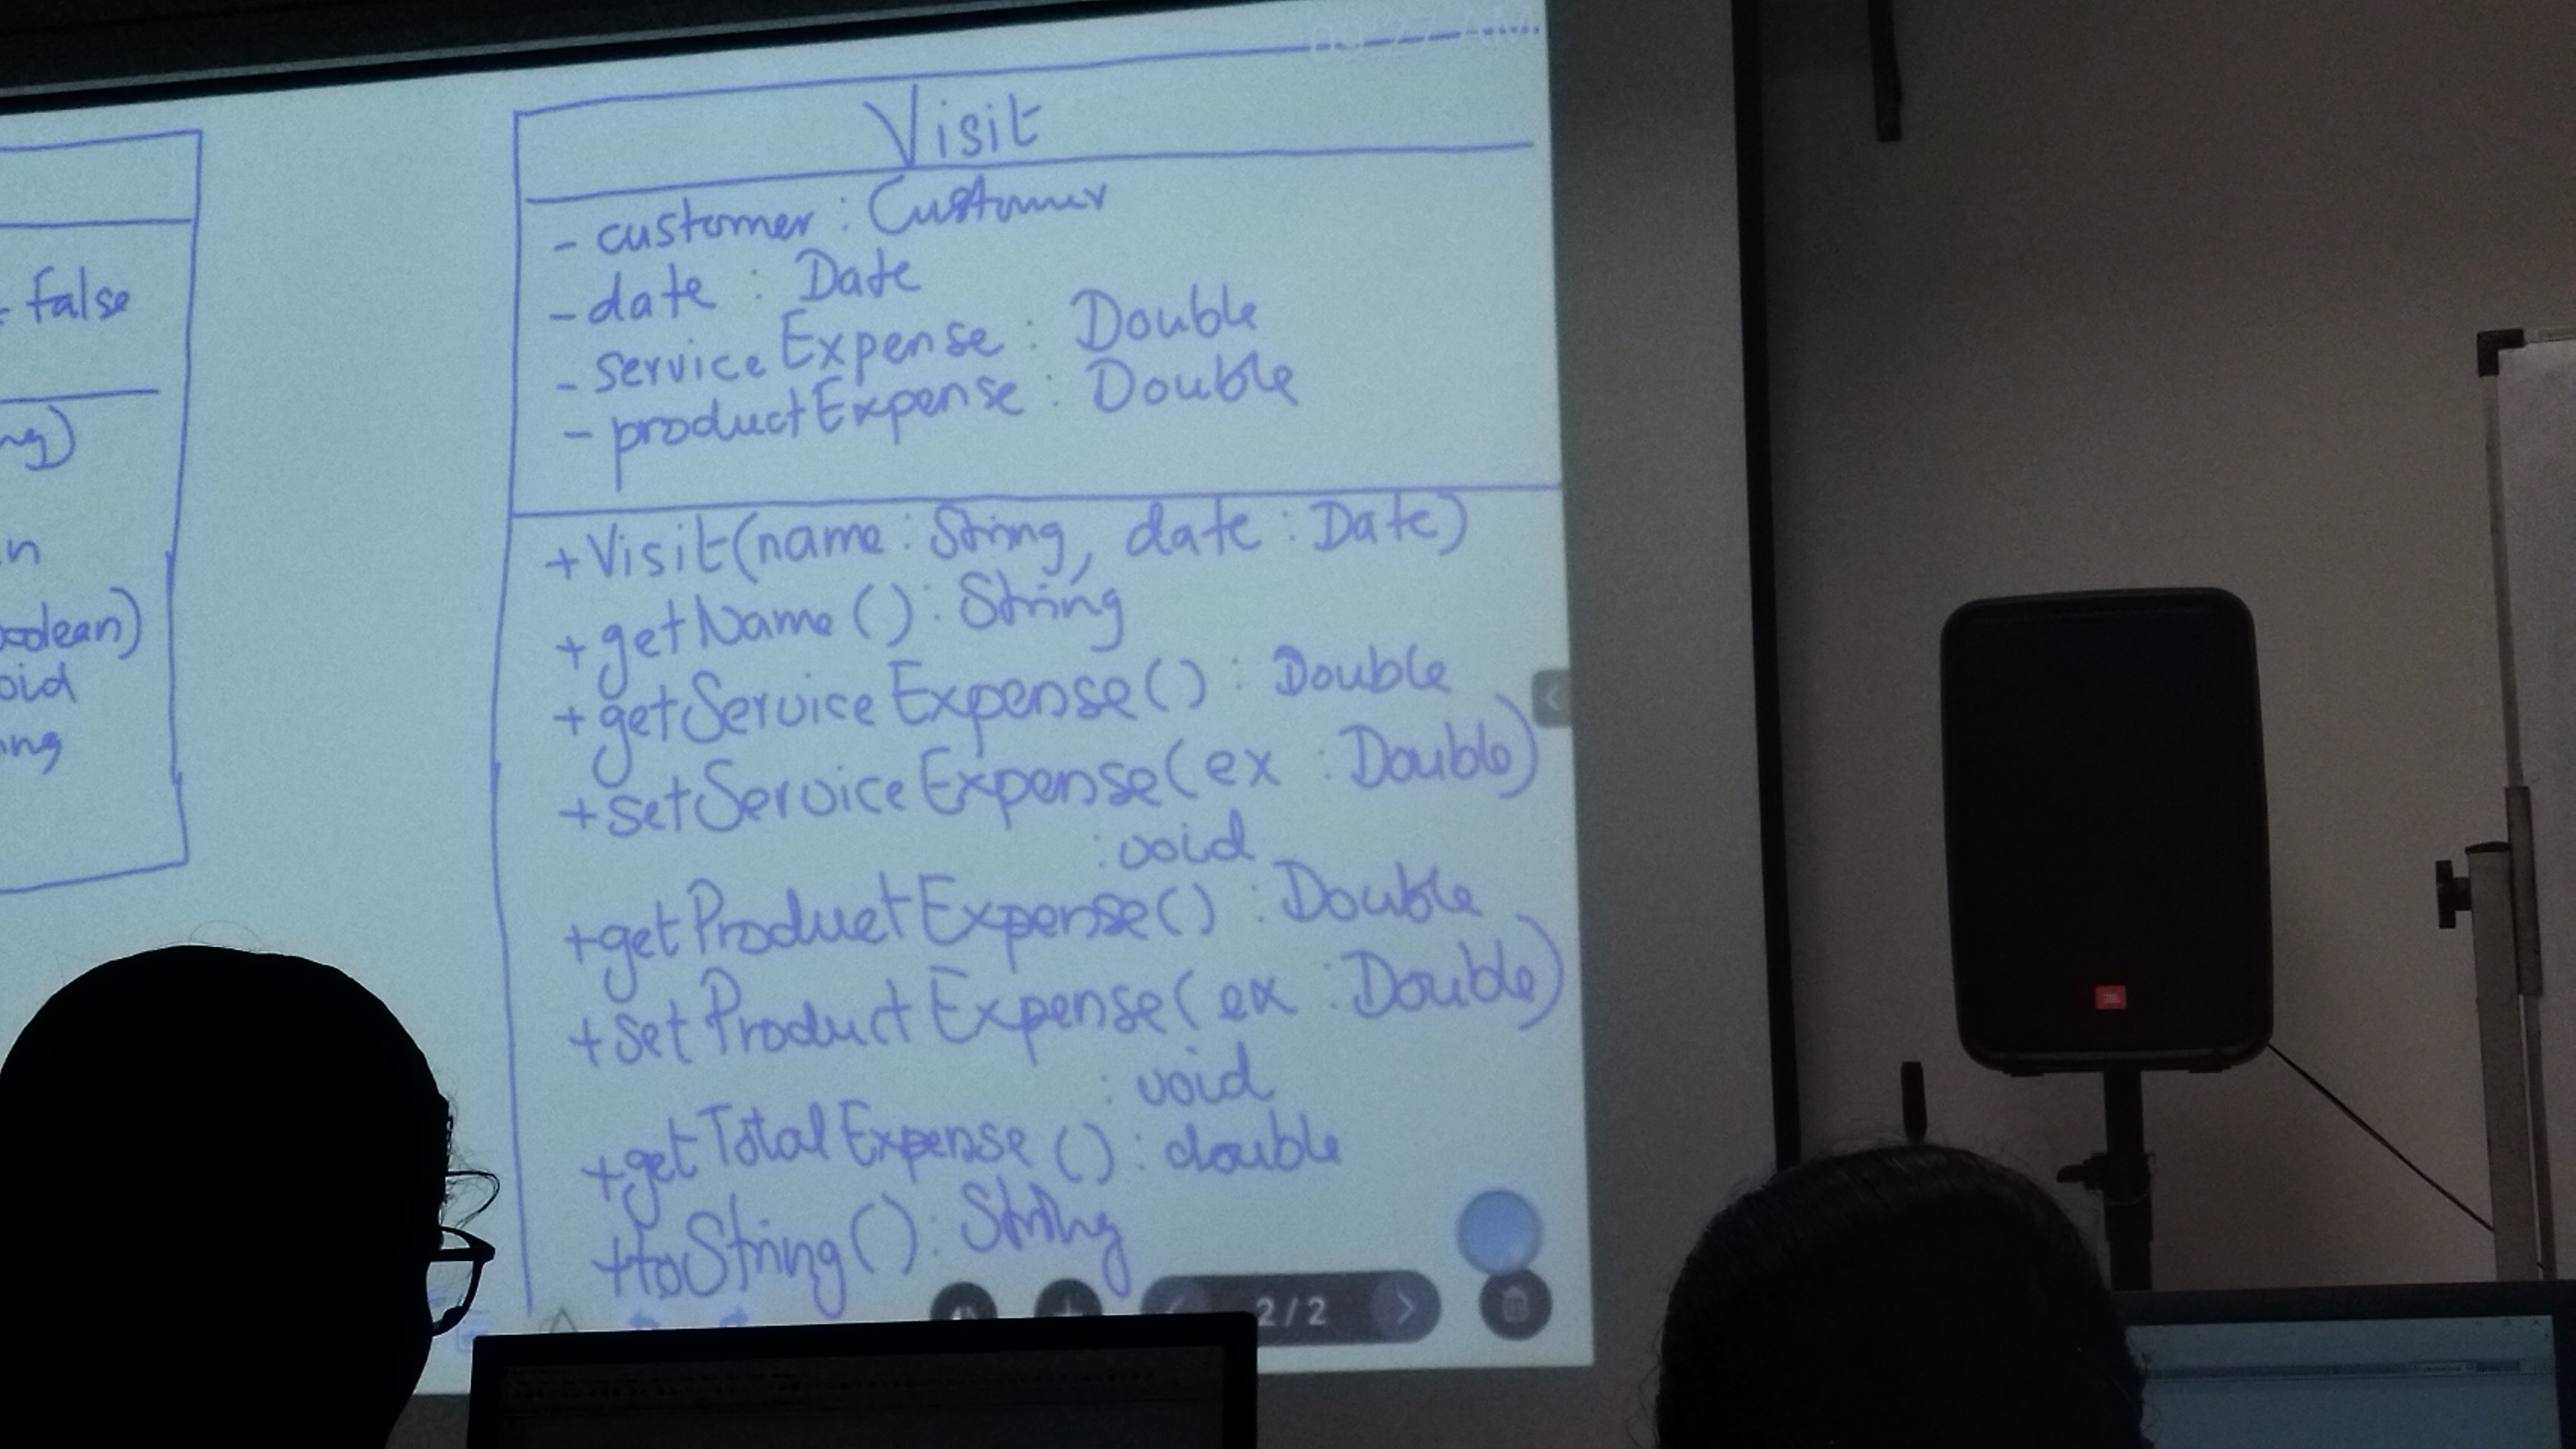 Visit
- customer : Customer
- date : Date
- serviceExpense : Double
- productExpense : Double
+ Visit(name : String, date : Date)
+ getName() : String
+ getServiceExpense() : Double
+ setServiceExpense(ex : Double)
: void
+ getProductExpense() : Double
+ setProductExpense(ex : Double)
: void
+ getTotalExpense() : double
+ toString() : String
false
2/2
JBL